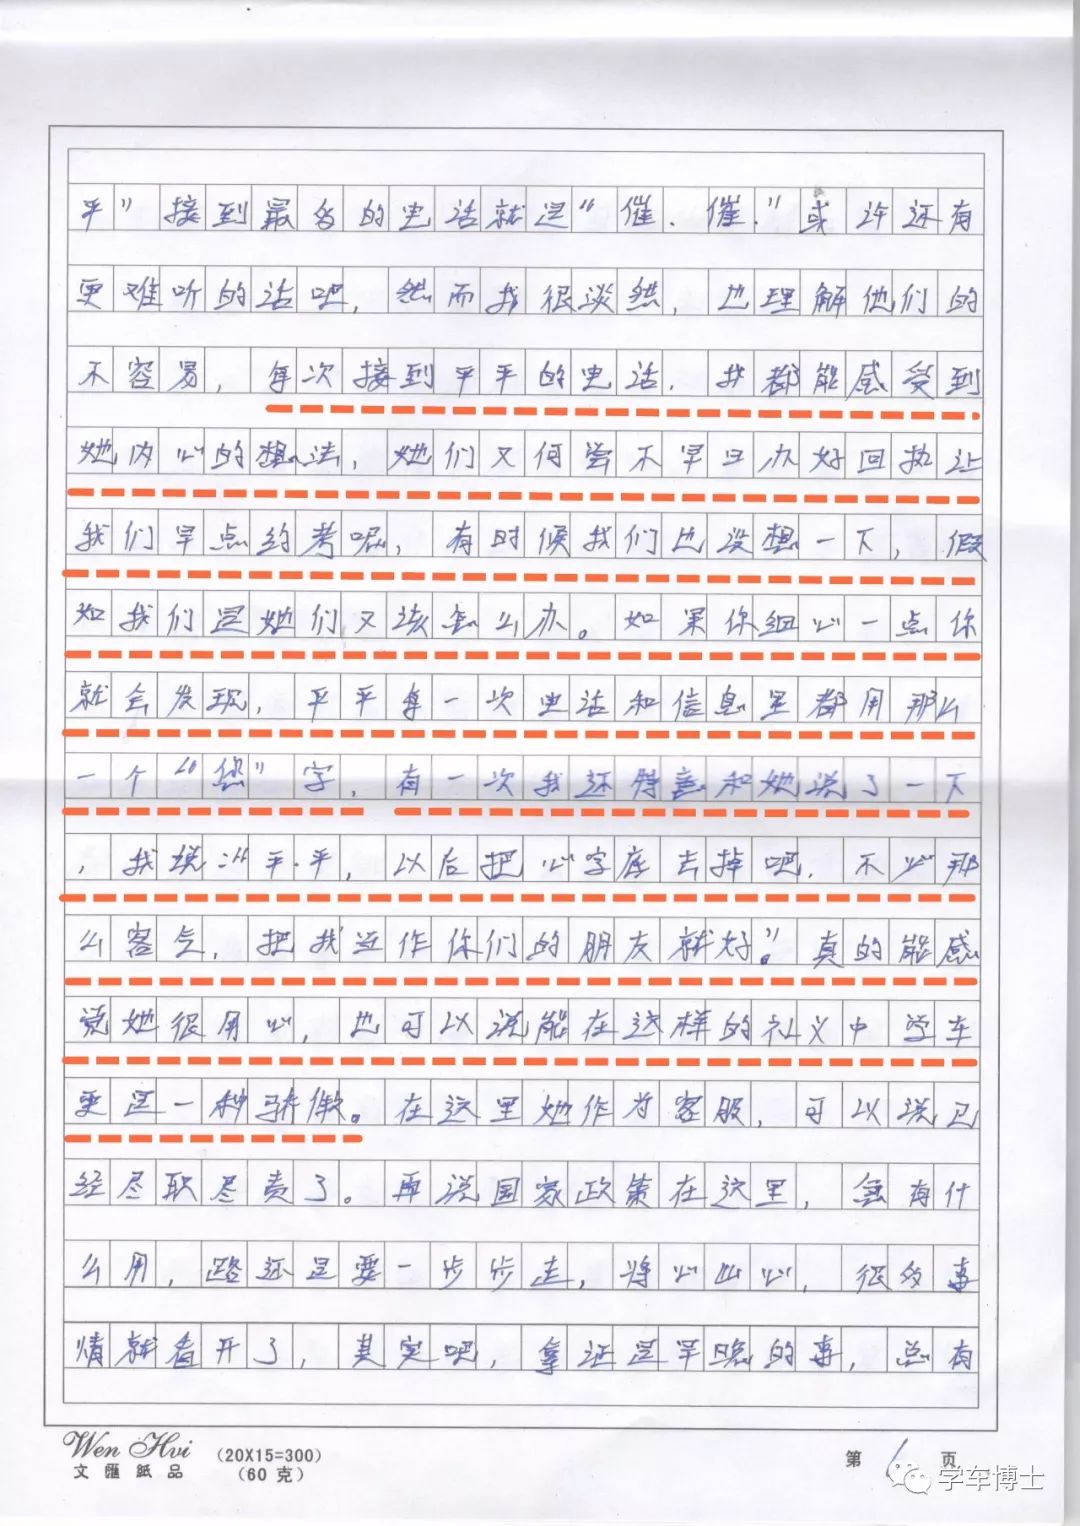 平”接到最多的电话就是“催.催.”或许还有
更难听的话吧，然而我很淡然，也理解他们的
不容易，每次接到平平的电话.我都能感受到
她内心的想法，她们又何尝不早日办好回执让
我们早点约考呢，有时候我们也没想一下，假
如我们是她们又该怎么办。如果你细心一点你
就会发现，平平每一次电话和信息里都用那么
一个“您”字，有一次我还特意和她说了一下
，我说：“平.平，以后把心字底去掉吧.不必那
么客气，把我当作你们的朋友就好。”真的能感
觉她很用心，也可以说能在这样的礼义中学车
更是一种骄傲。在这里她作为客服，可以说已
经尽职尽责了。再说国家政策在这里，急有什
么用，路还是要一步步走，将心比心，很多事
情就看开了，其实吧，拿证是早晚的事，总有
Wen Hvi (20X15=300)
文匯紙品 (60克)
第 6 页
学车博士